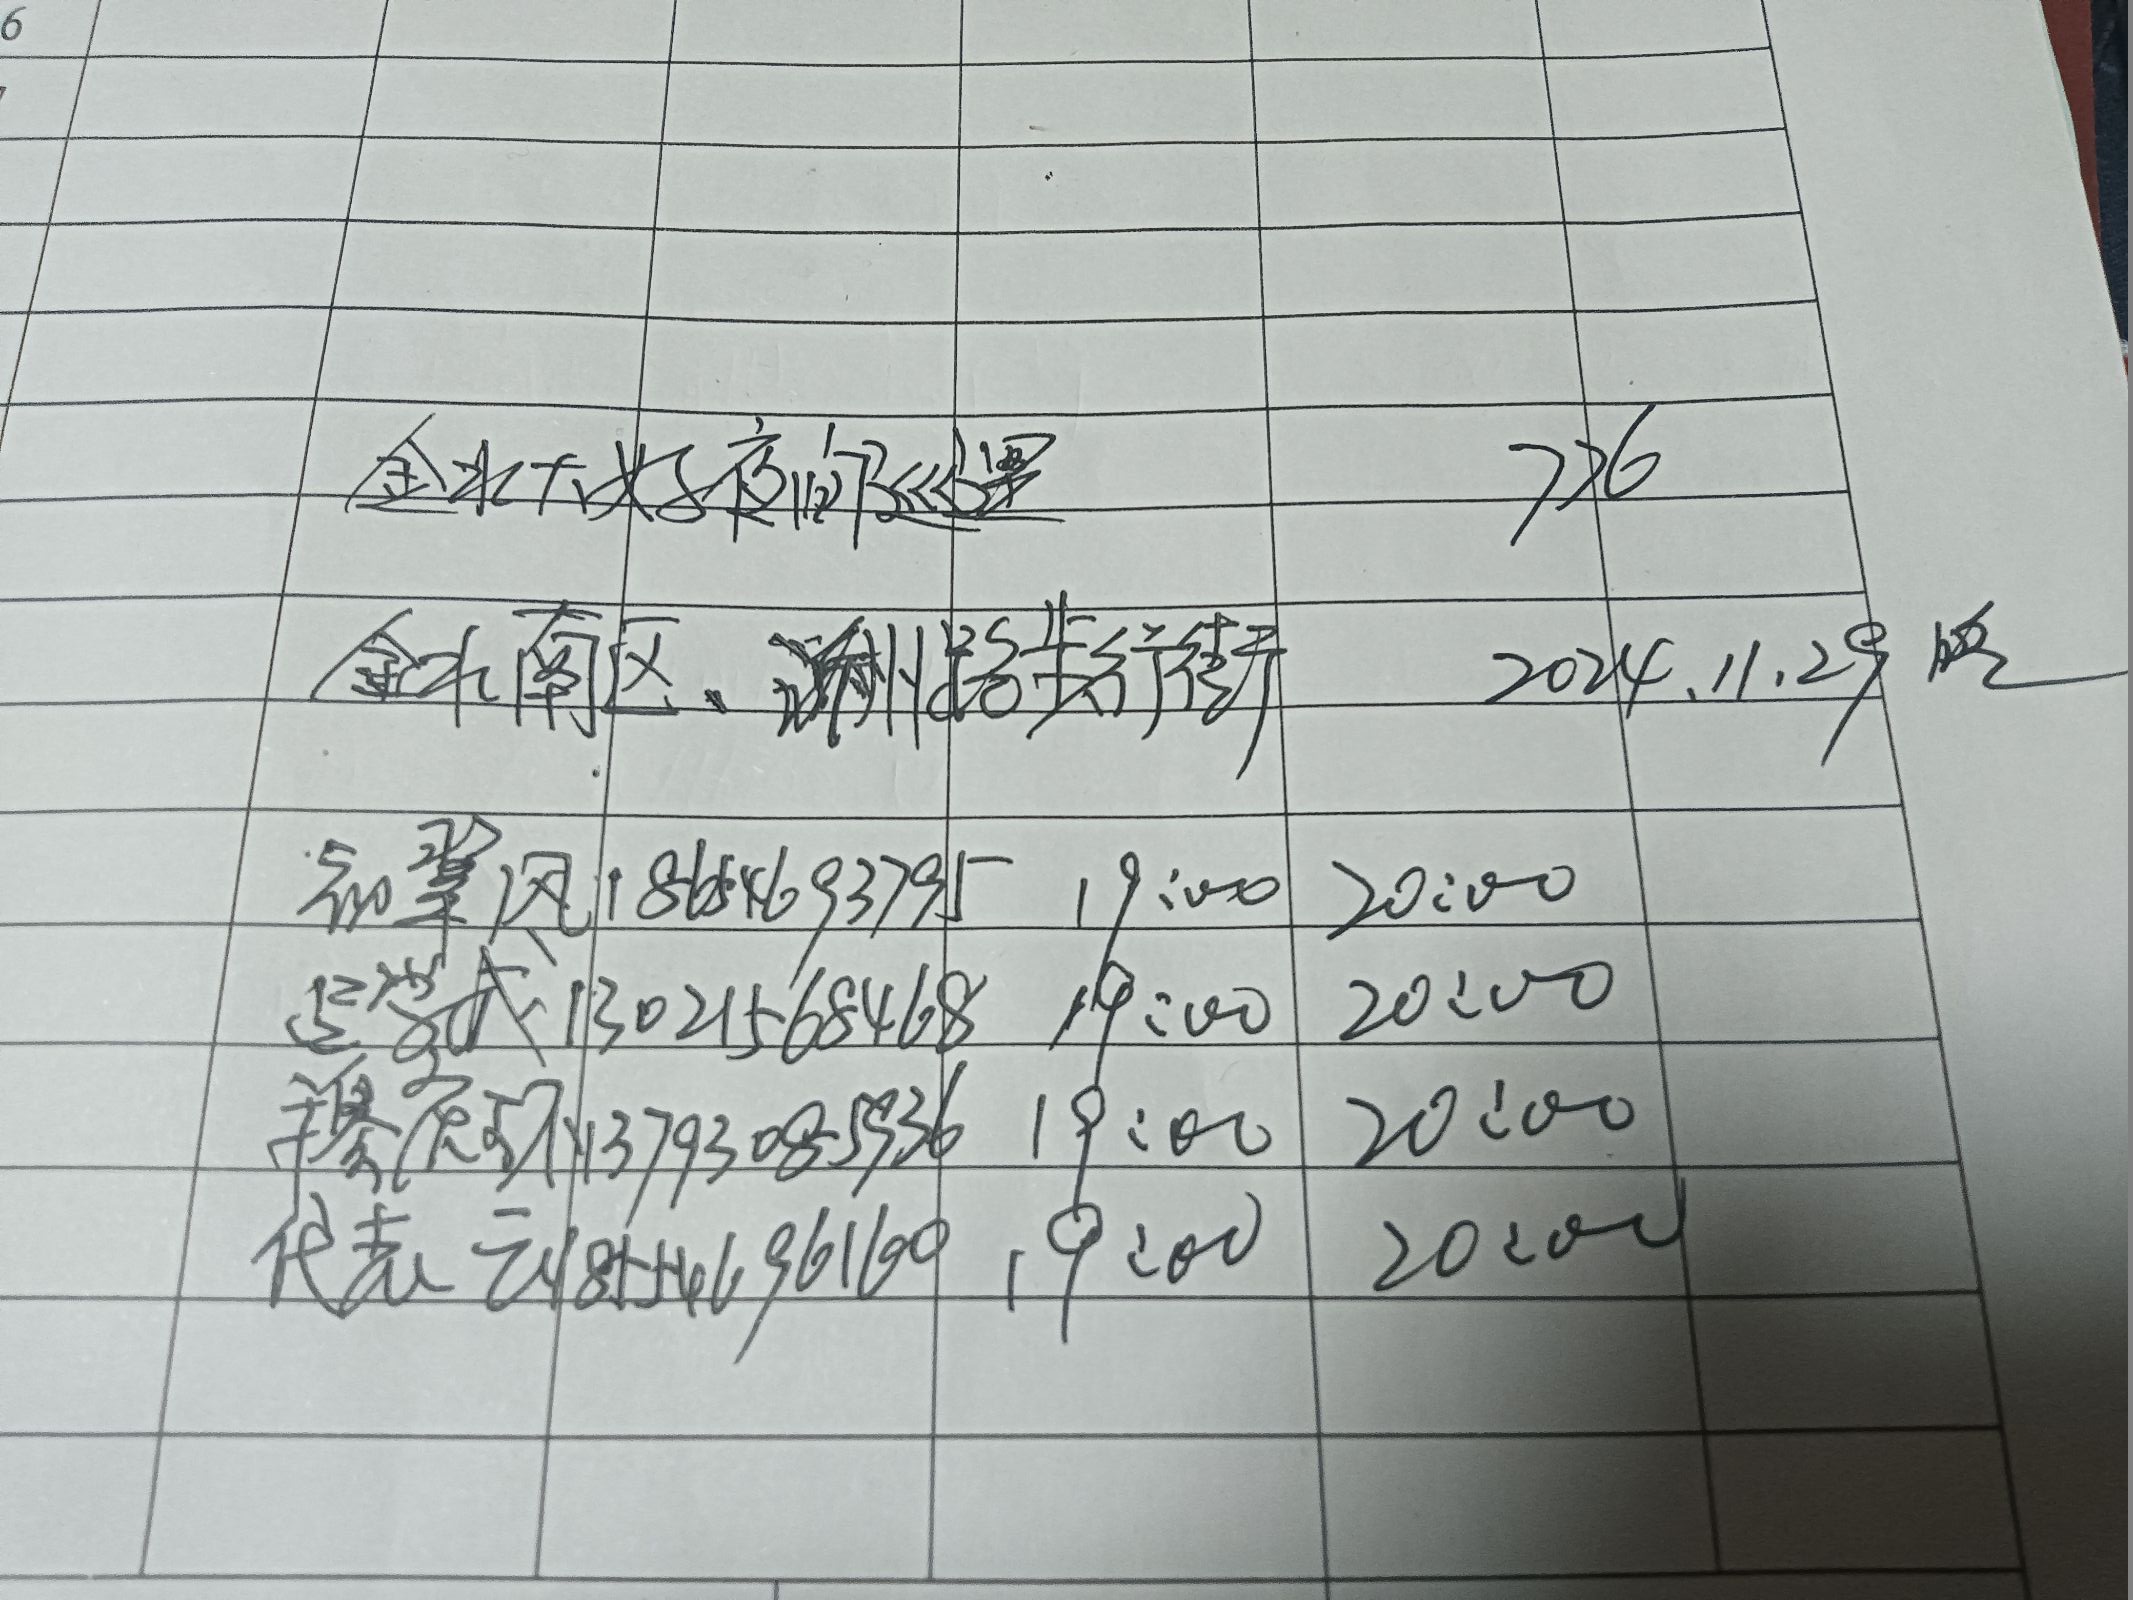 6
7
金水大妈夜间巡逻 736
金水南区、州路步行街 2024.11.29 晚
翠风 18654693795 19:00 20:00
13021568468 19:00 20:00
13793085936 19:00 20:00
代志云 18554696160 19:00 20:00